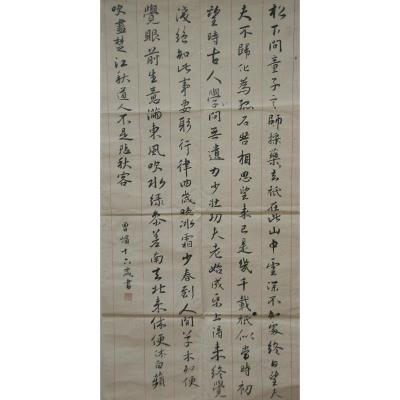 松下问童子言师採藥去祇在此山中雲深不知家終日望夫
夫不歸化為孤石苦相思望来已是幾千載祇似當時初
望時古人學问無遺力少壮功夫老始成帋上得来終覺
淺絶知此事要躬行律回歲晚冰霜少春到人间草木知便
覺眼前生意滿東風吹水绿参差南去北来休便休白蘋
吹盡楚江秋道人不是悲秋客
曹 十六歲書